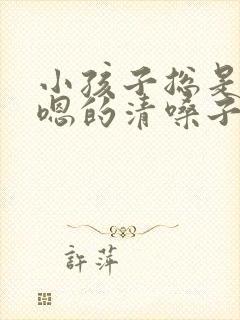 小孩子总是
嗯的清嗓子
許萍